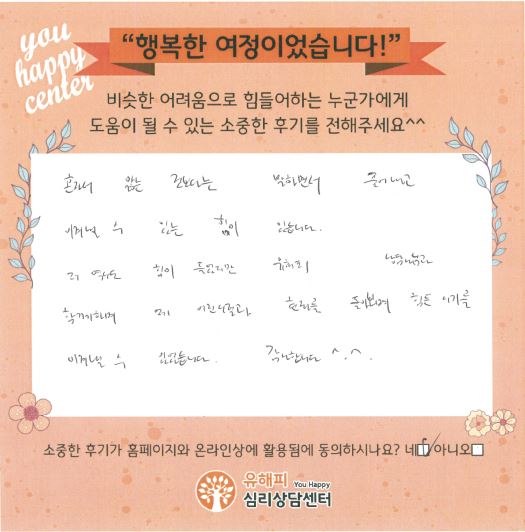 you
happy
center
“행복한 여정이었습니다!”
비슷한 어려움으로 힘들어하는 누군가에게
도움이 될 수 있는 소중한 후기를 전해주세요^^
혼자서 앓는 것보다는 말하면서 풀어내고
이겨낼 수 있는 힘이 있습니다.
저 역시도 힘이 들었지만 유해피
함께하며 제 어린시절과 현재를 돌아보며 힘든 시기를
이겨낼 수 있었습니다. 감사합니다 ^.^.
소중한 후기가 홈페이지와 온라인상에 활용됨에 동의하시나요? 네 아니오
유해피 You Happy
심리상담센터